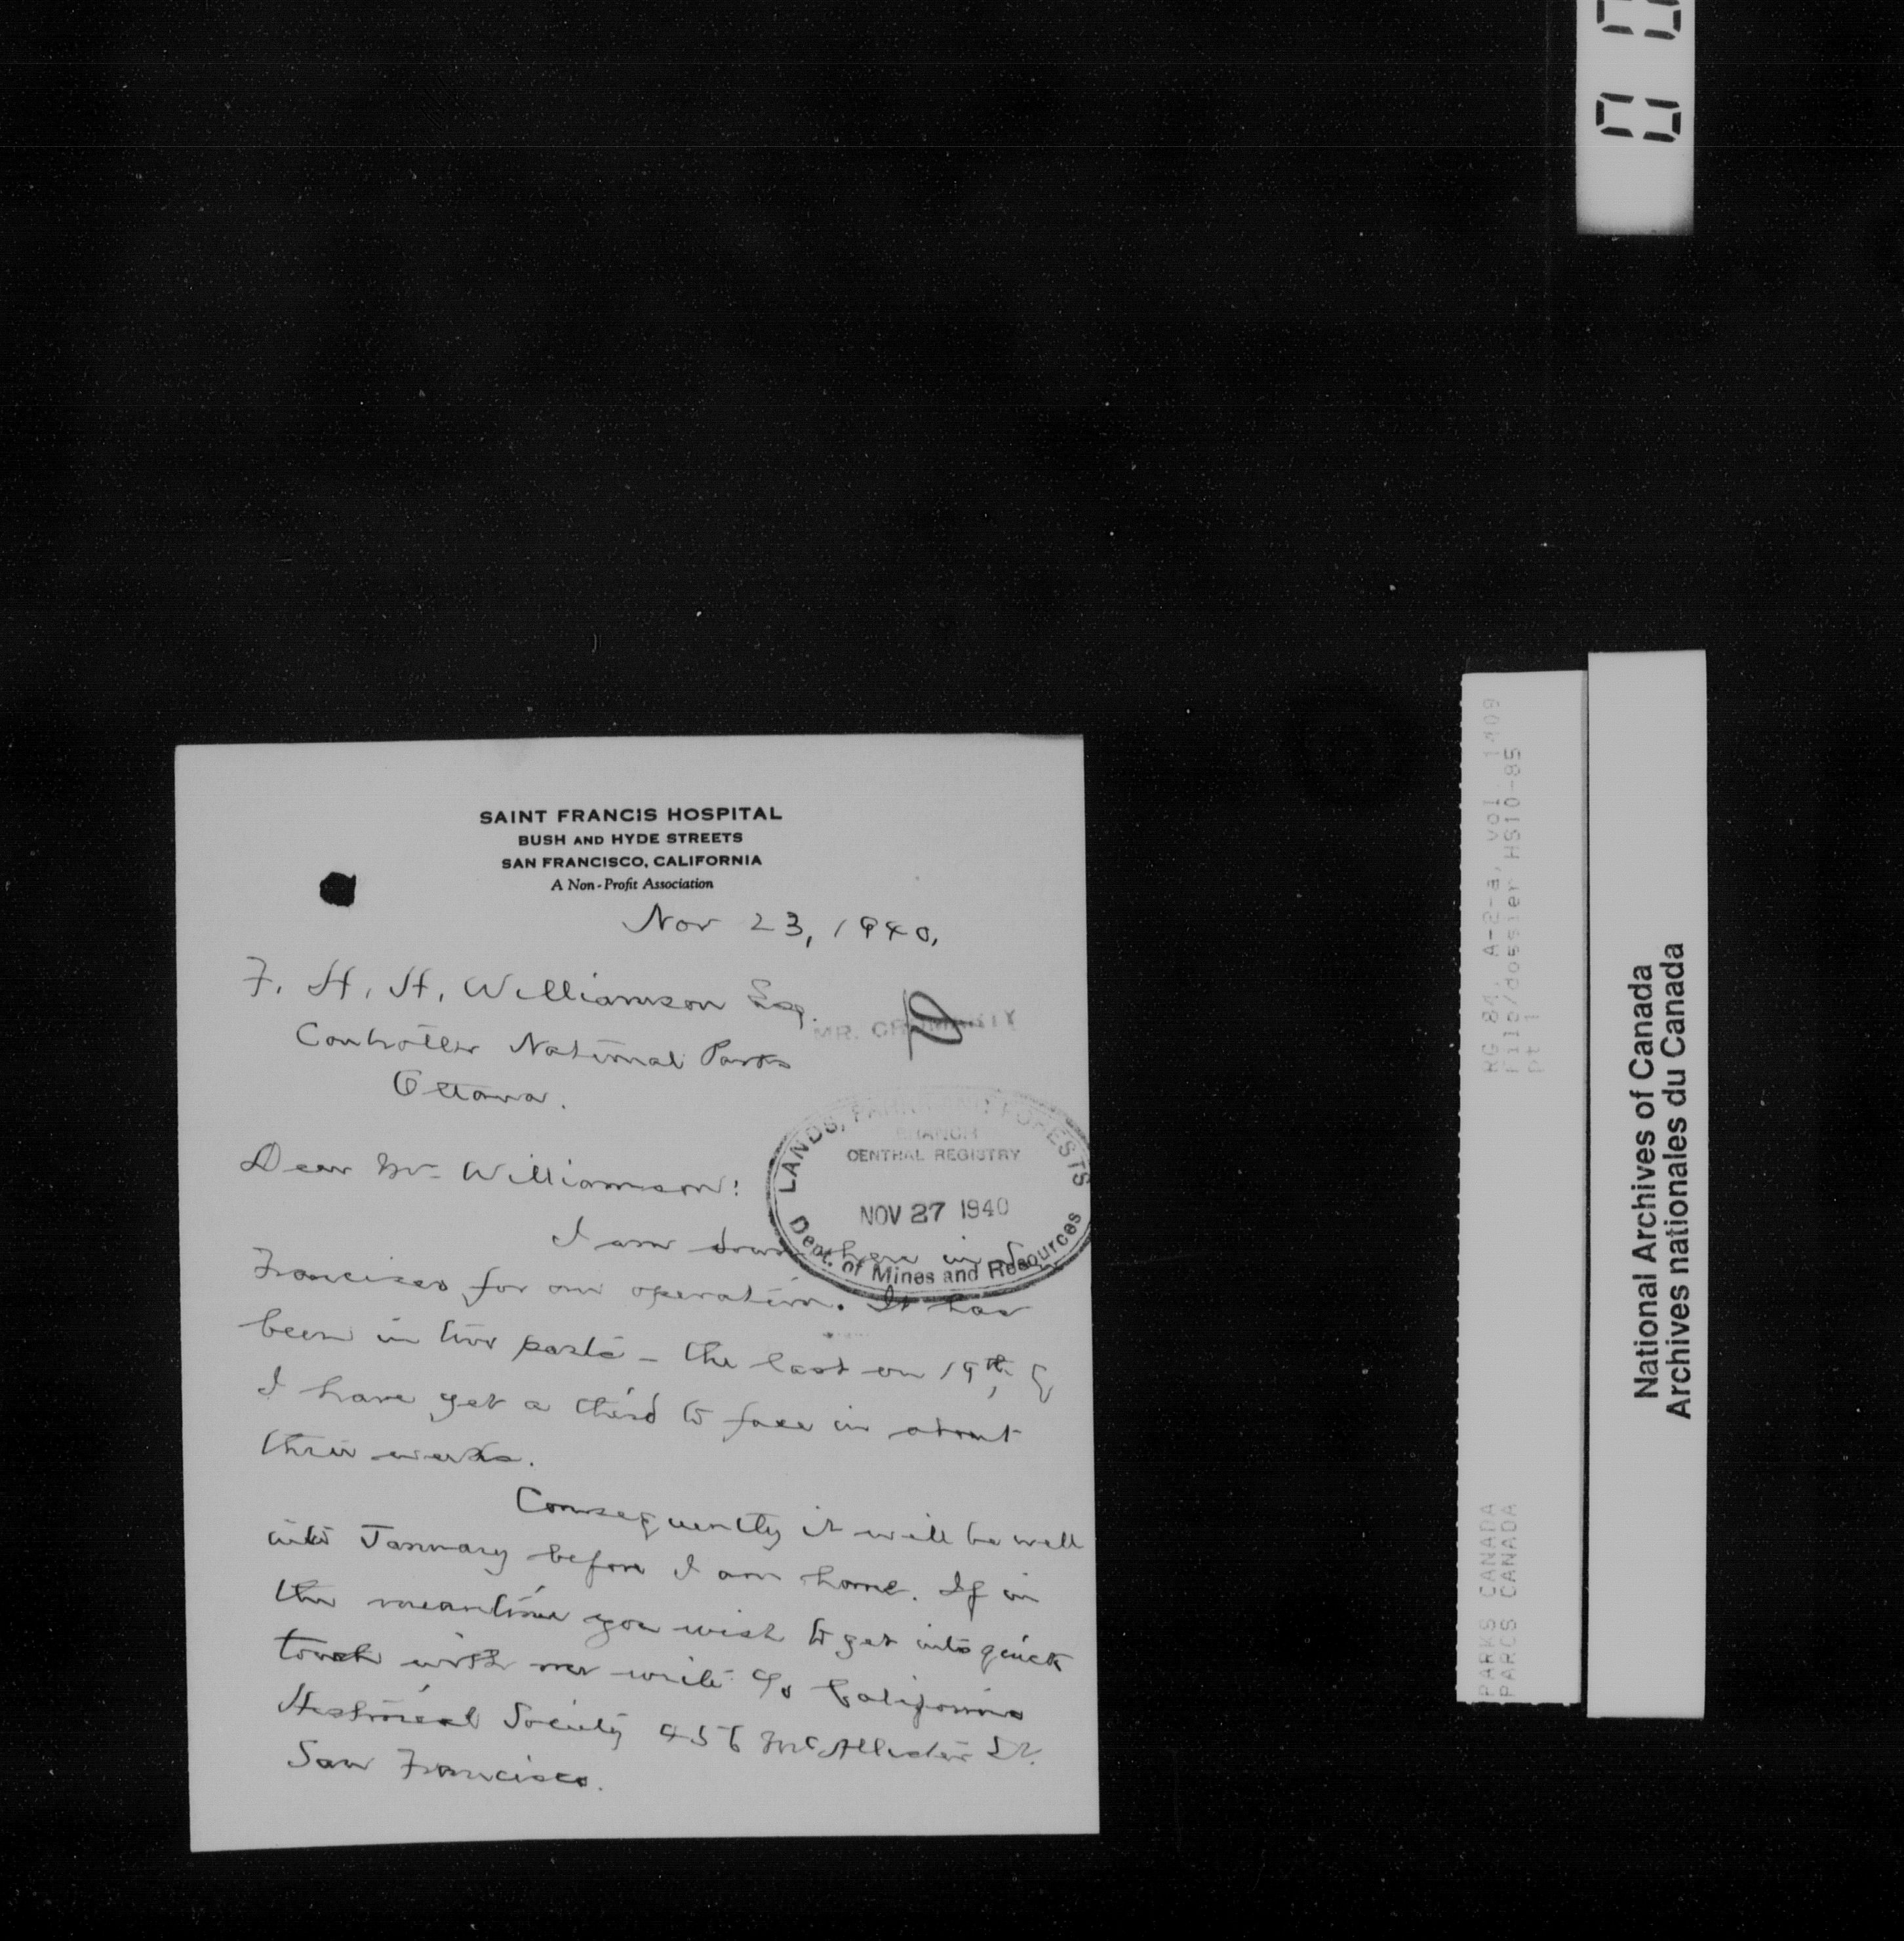 SAINT FRANCIS HOSPITAL
BUSH AND HYDE STREETS
SAN FRANCISCO, CALIFORNIA
A Non-Profit Association
Nov 23, 1940.
F. H. H. Williamson Esq.
MR. CROMARTY
Controller National Parks
Ottawa.
LANDS, PARKS AND FORESTS
BRANCH
CENTRAL REGISTRY
NOV 27 1940
Dept. of Mines and Resources
Dear Mr Williamson:
I am down here in San
Francisco for an operation. It has
been in two parts - the last on 19th, &
I have yet a third to face in about
three weeks.
Consequently it will be well
into January before I am home. If in
the meantime you wish to get into quick
touch with me write c/o California
Historical Society 456 McAllister St.
San Francisco.
RG 84, A-2-a, vol. 1409
file/dossier HS10-85
pt 1
PARKS CANADA
PARCS CANADA
National Archives of Canada
Archives nationales du Canada